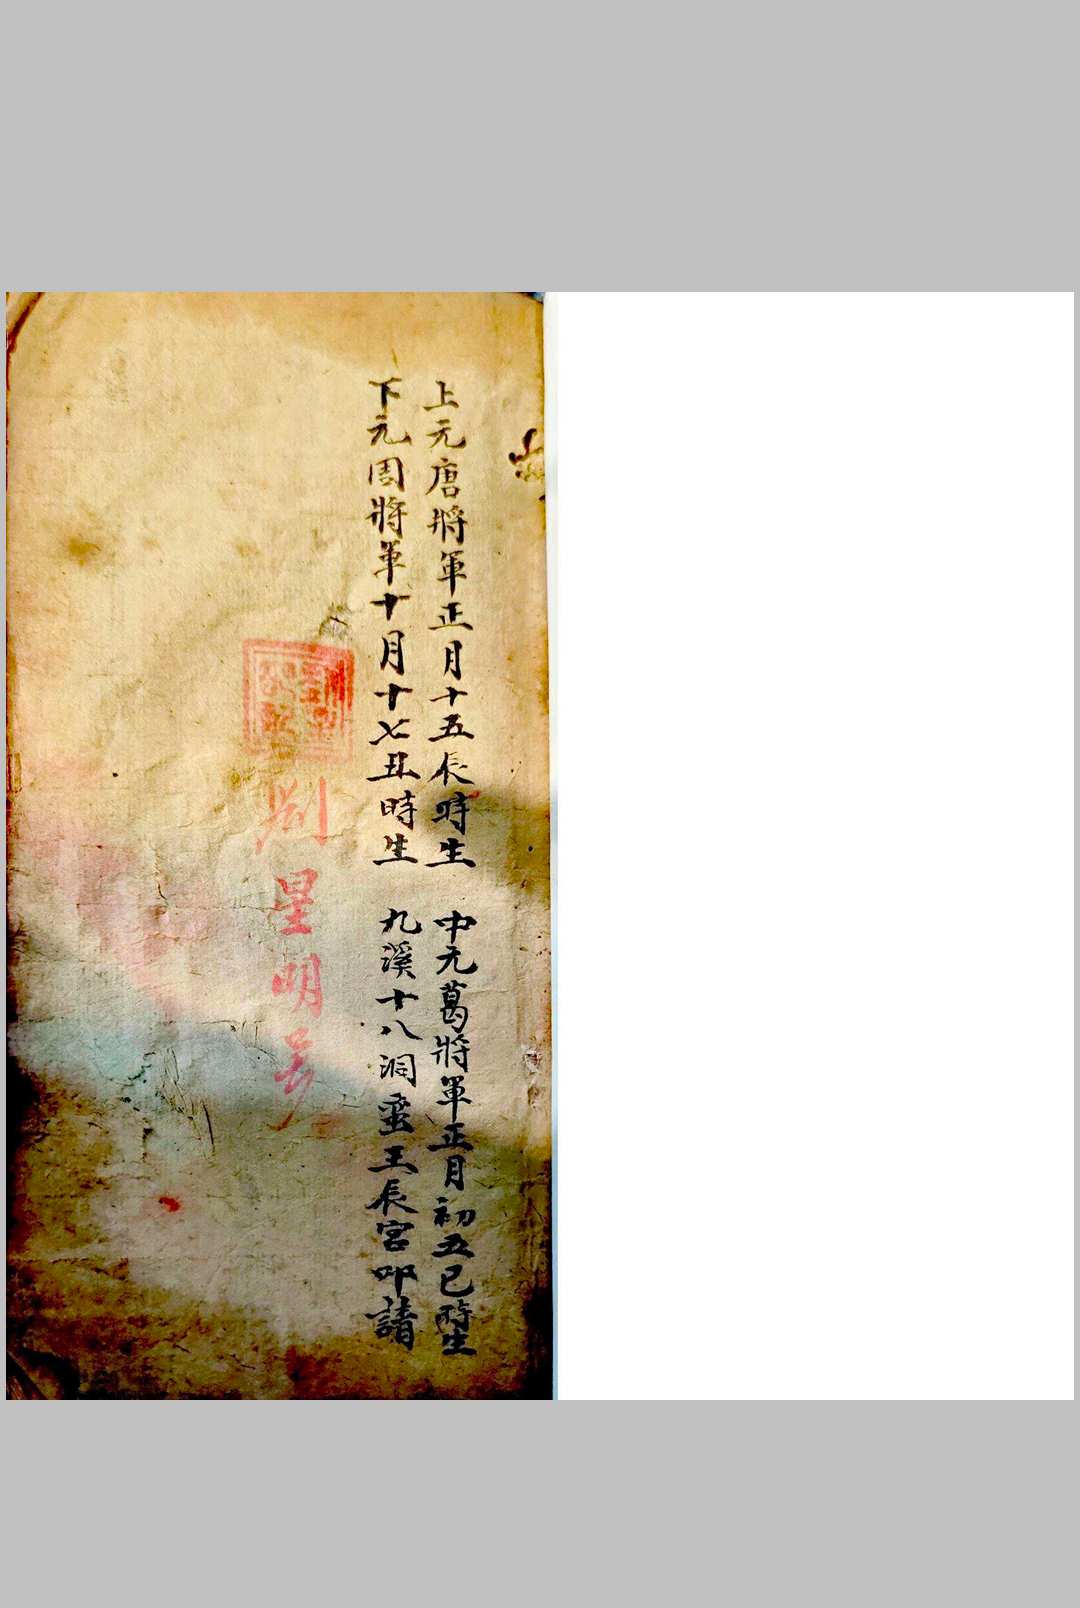 上元唐將軍正月十五辰時生 中元葛將軍正月初五巳時生
下元周將軍十月十七丑時生 九溪十八洞蛮王長官叩請
劉星明号